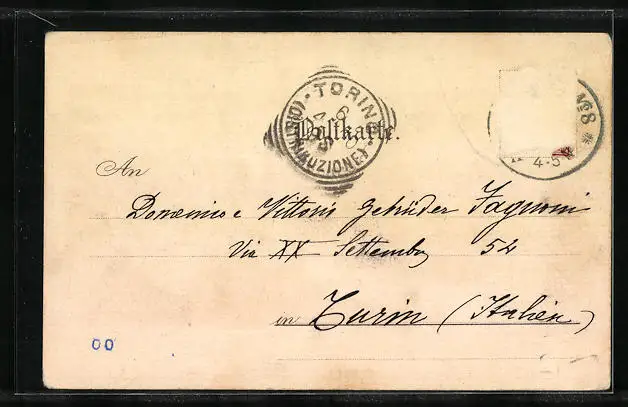 TORINO
(DISTRIBUZIONE)
Postkarte.
No 8 *
4-5
An
Domenico e Vittorio Gebrüder Fagnoni
Via XX Settembre 52
in Turin (Italien)
00